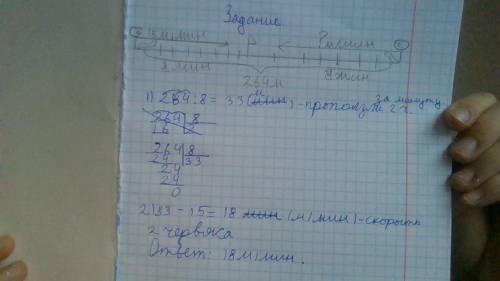 Задание
м/мин ? м/мин
8 мин 8 мин
264 м
1) 264 : 8 = 33 (м) - проползли за минуту 2 ч.
264 8
16
264 8
24 33
24
24
0
2) 33 - 15 = 18 мин (м/мин) - скорость
2 червяка
Ответ: 18 м/мин.